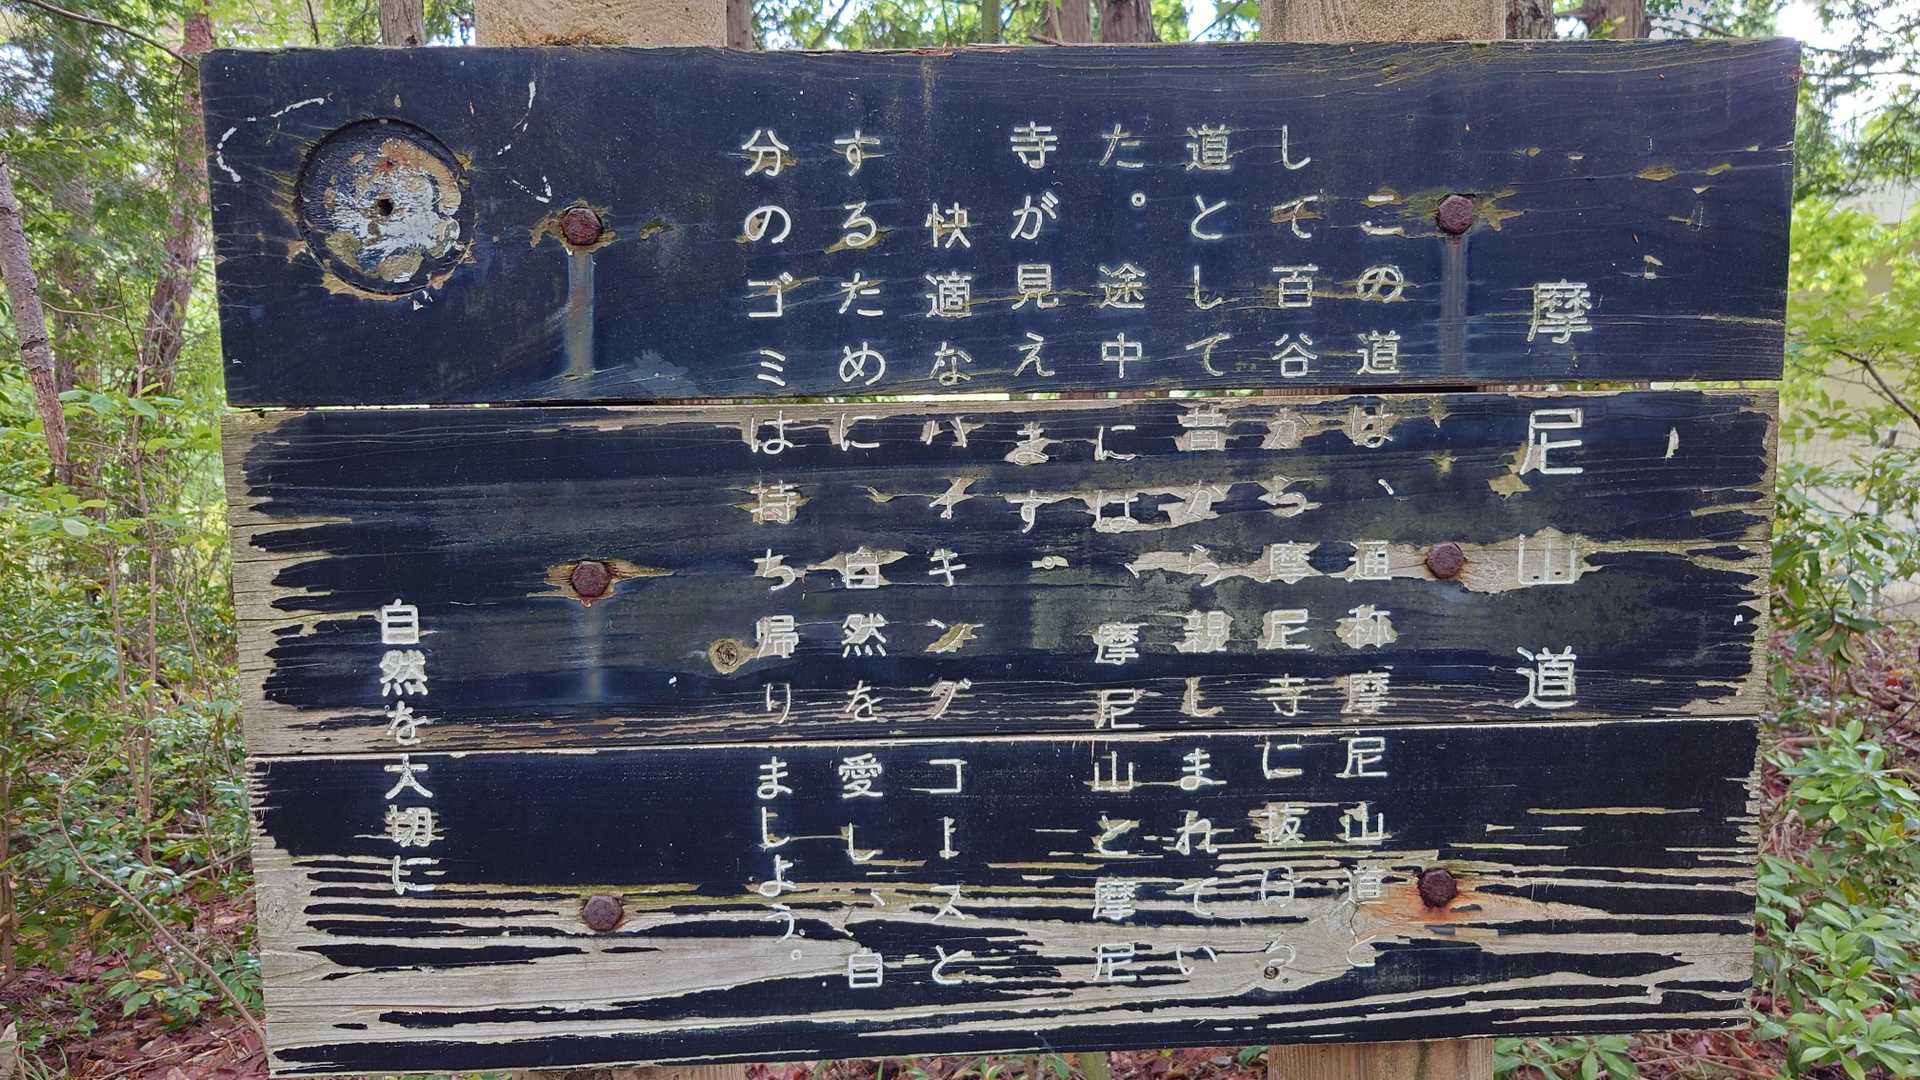 摩尼山道
この道は、通称摩尼山道と
して百谷から摩尼寺に抜ける
道として昔から親しまれてい
た。途中には、摩尼山と摩尼
寺が見えます。
快適なハイキングコースと
するために自然を愛し、自
分のゴミは持ち帰りましよう。
自然を大切に